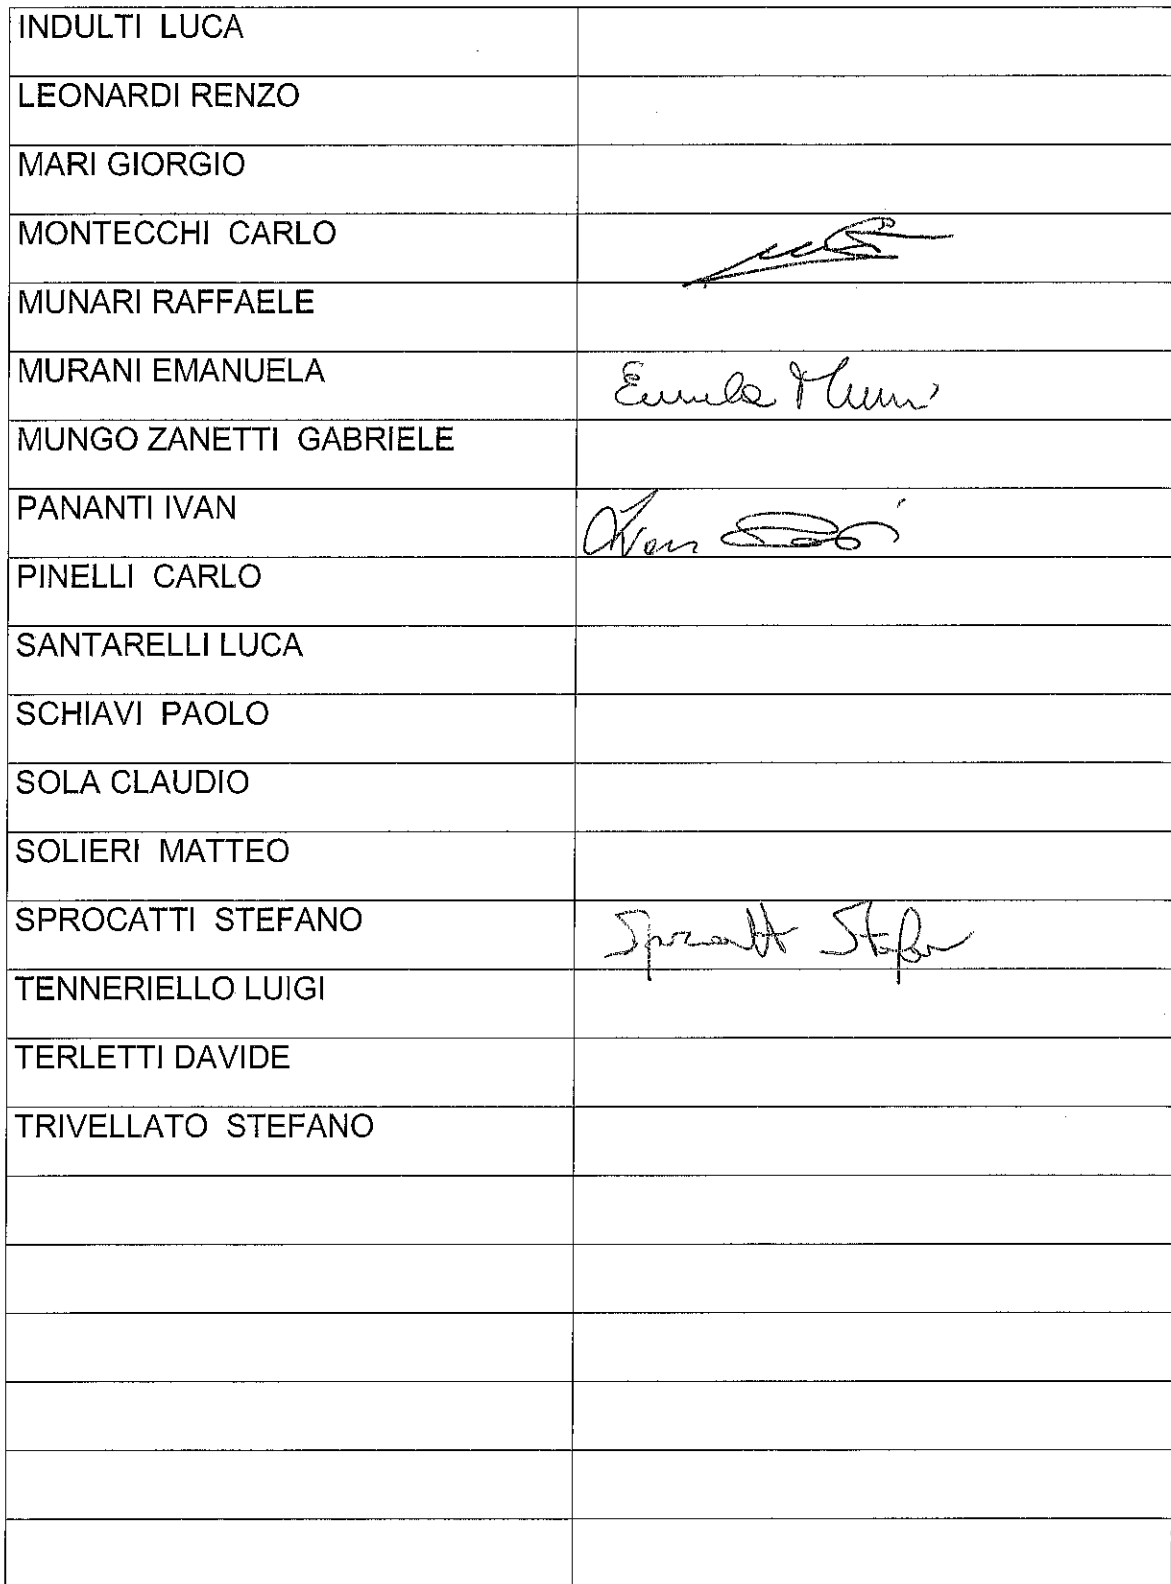 INDULTI LUCA
LEONARDI RENZO
MARI GIORGIO
MONTECCHI CARLO
MUNARI RAFFAELE
MURANI EMANUELA
MUNGO ZANETTI GABRIELE
PANANTI IVAN
Ivan
PINELLI CARLO
SANTARELLI LUCA
SCHIAVI PAOLO
SOLA CLAUDIO
SOLIERI MATTEO
SPROCATTI STEFANO
TENNERIELLO LUIGI
TERLETTI DAVIDE
TRIVELLATO STEFANO